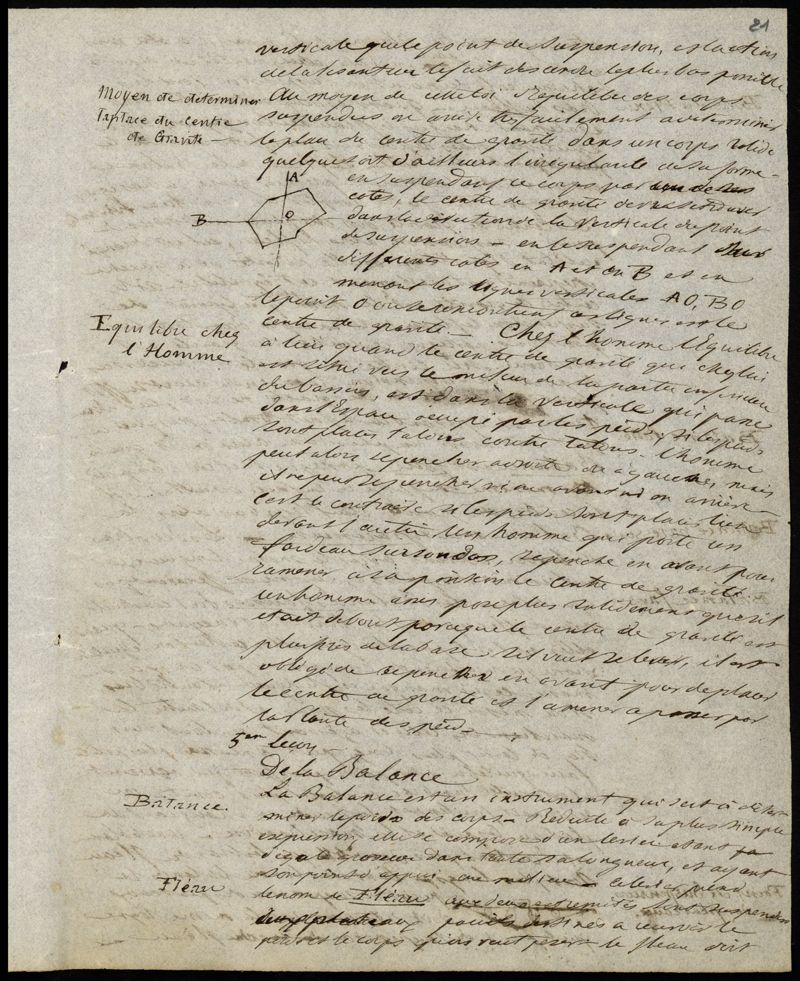 21
verticale que le point de suspension, et l'action
de la pesanteur le fait descendre le plus bas possible
Moyen de determiner
la place du Centre
de Gravité —
Au moyen de cette loi d'equilibre des corps
suspendus on arrive très facilement a determiner
la place du centre de gravité dans un corps solide
quelque soit d'ailleurs l'irregularité de sa forme —
en suspendant ce corps par un de ses
cotés, le centre de gravité devra se trouver
dans la direction de la verticale du point
de suspension — en le suspendant sur
differents cotés en A et en B et en
menant les lignes verticales AO, BO
A
B
O
le point O ou se rencontrent ces lignes est le
centre de gravité — Chez l'homme l'Equilibre
Equilibre chez
l'Homme
a lieu quand le centre de gravité qui chez lui
est situé vers le milieu de la partie inferieure
du bassin, est dans la verticale qui passe
dans l'Espace occupé par les pieds. Si les pieds
sont placés talons contre talons, l'homme
peut alors se pencher a droite et a gauche, mais
il ne peut se pencher ni en avant ni en arrière
c'est le contraire si les pieds sont placés l'un
devant l'autre. Un homme qui porte un
fardeau sur son dos, se penche en avant pour
ramener à sa position le centre de gravité
un homme assis pose plus solidement que s'il
etait debout parceque le centre de gravité est
plus près de la base s'il veut se lever, il est
obligé de se pencher en avant pour deplacer
le centre de gravité et l'amener a passer par
la plante des pieds —
5eme leçon
De la Balance
Balance.
La Balance est un instrument qui sert à déter-
miner le poids des corps — Reduite à sa plus simple
expression elle se compose d'un levier
d'egale grosseur dans toute sa longueur, et ayant
son point d'appui au milieu — ce levier prend
Fléau
le nom de Fléau aux deux extremités sont suspendus
deux plateaux pareils destinés a recevoir le
poids et le corps qu'on veut peser — le fleau doit